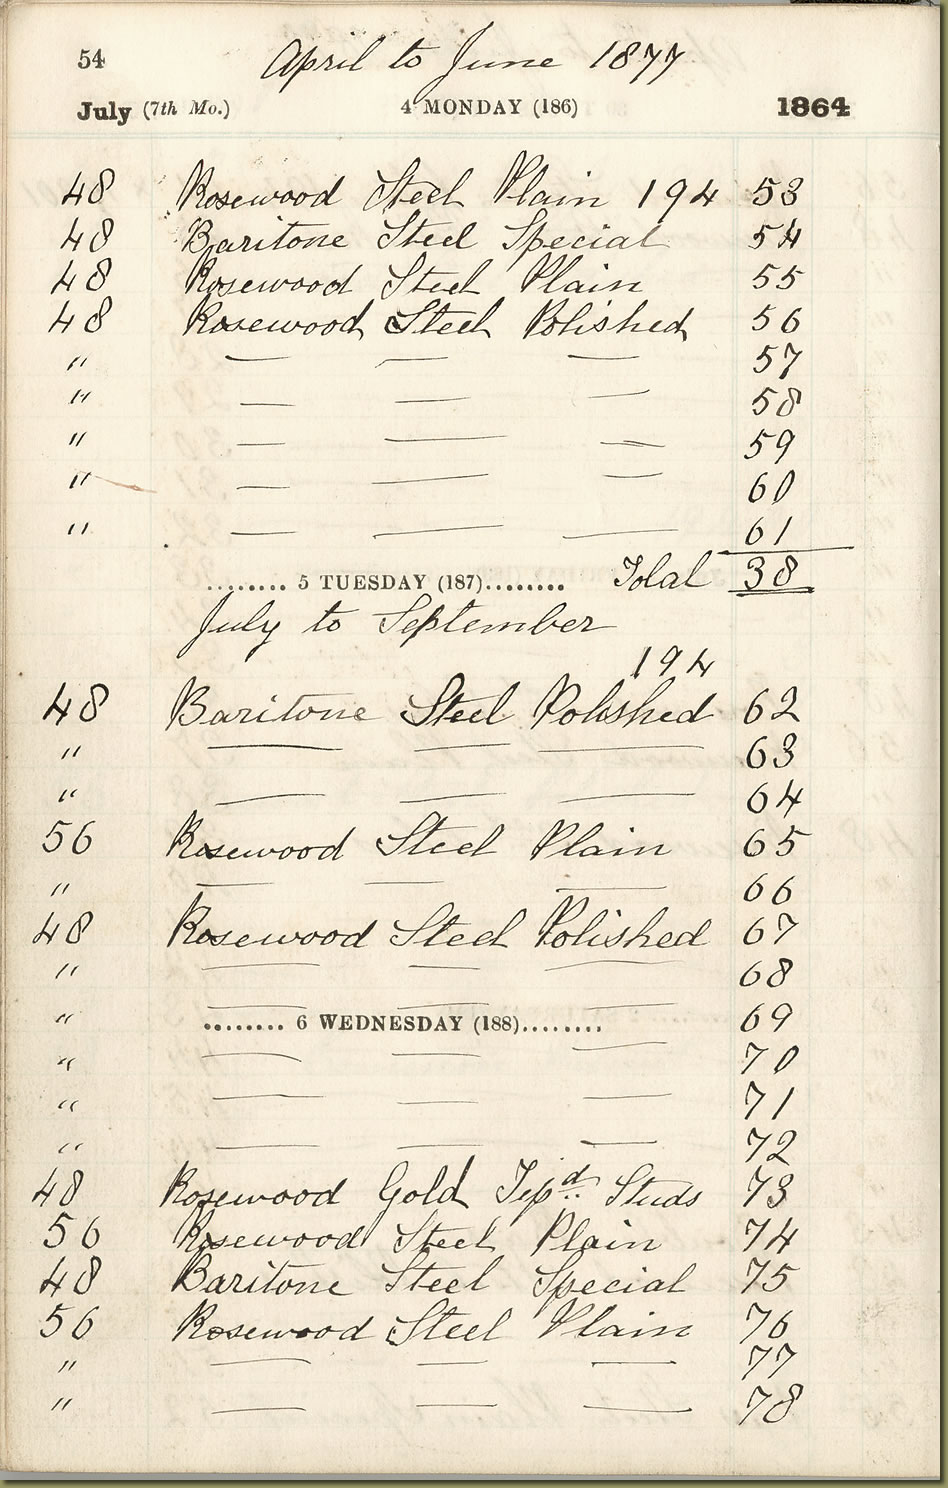 54 April to June 1877
July (7th Mo.) 4 MONDAY (186) 1864
48 Rosewood Steel Plain 194 53
48 Baritone Steel Special 54
48 Rosewood Steel Plain 55
48 Rosewood Steel Polished 56
" — — — 57
" — — — 58
" — — — 59
" — — — 60
" — — — 61
........ 5 TUESDAY (187)........ Total 38
July to September
194
48 Baritone Steel Polished 62
" — — — 63
" — — — 64
56 Rosewood Steel Plain 65
" — — — 66
48 Rosewood Steel Polished 67
" — — — 68
" — — — 69
........ 6 WEDNESDAY (188)........
" — — — 70
" — — — 71
" — — — 72
48 Rosewood Gold Tipd Studs 73
56 Rosewood Steel Plain 74
48 Baritone Steel Special 75
56 Rosewood Steel Plain 76
" — — — 77
" — — — 78